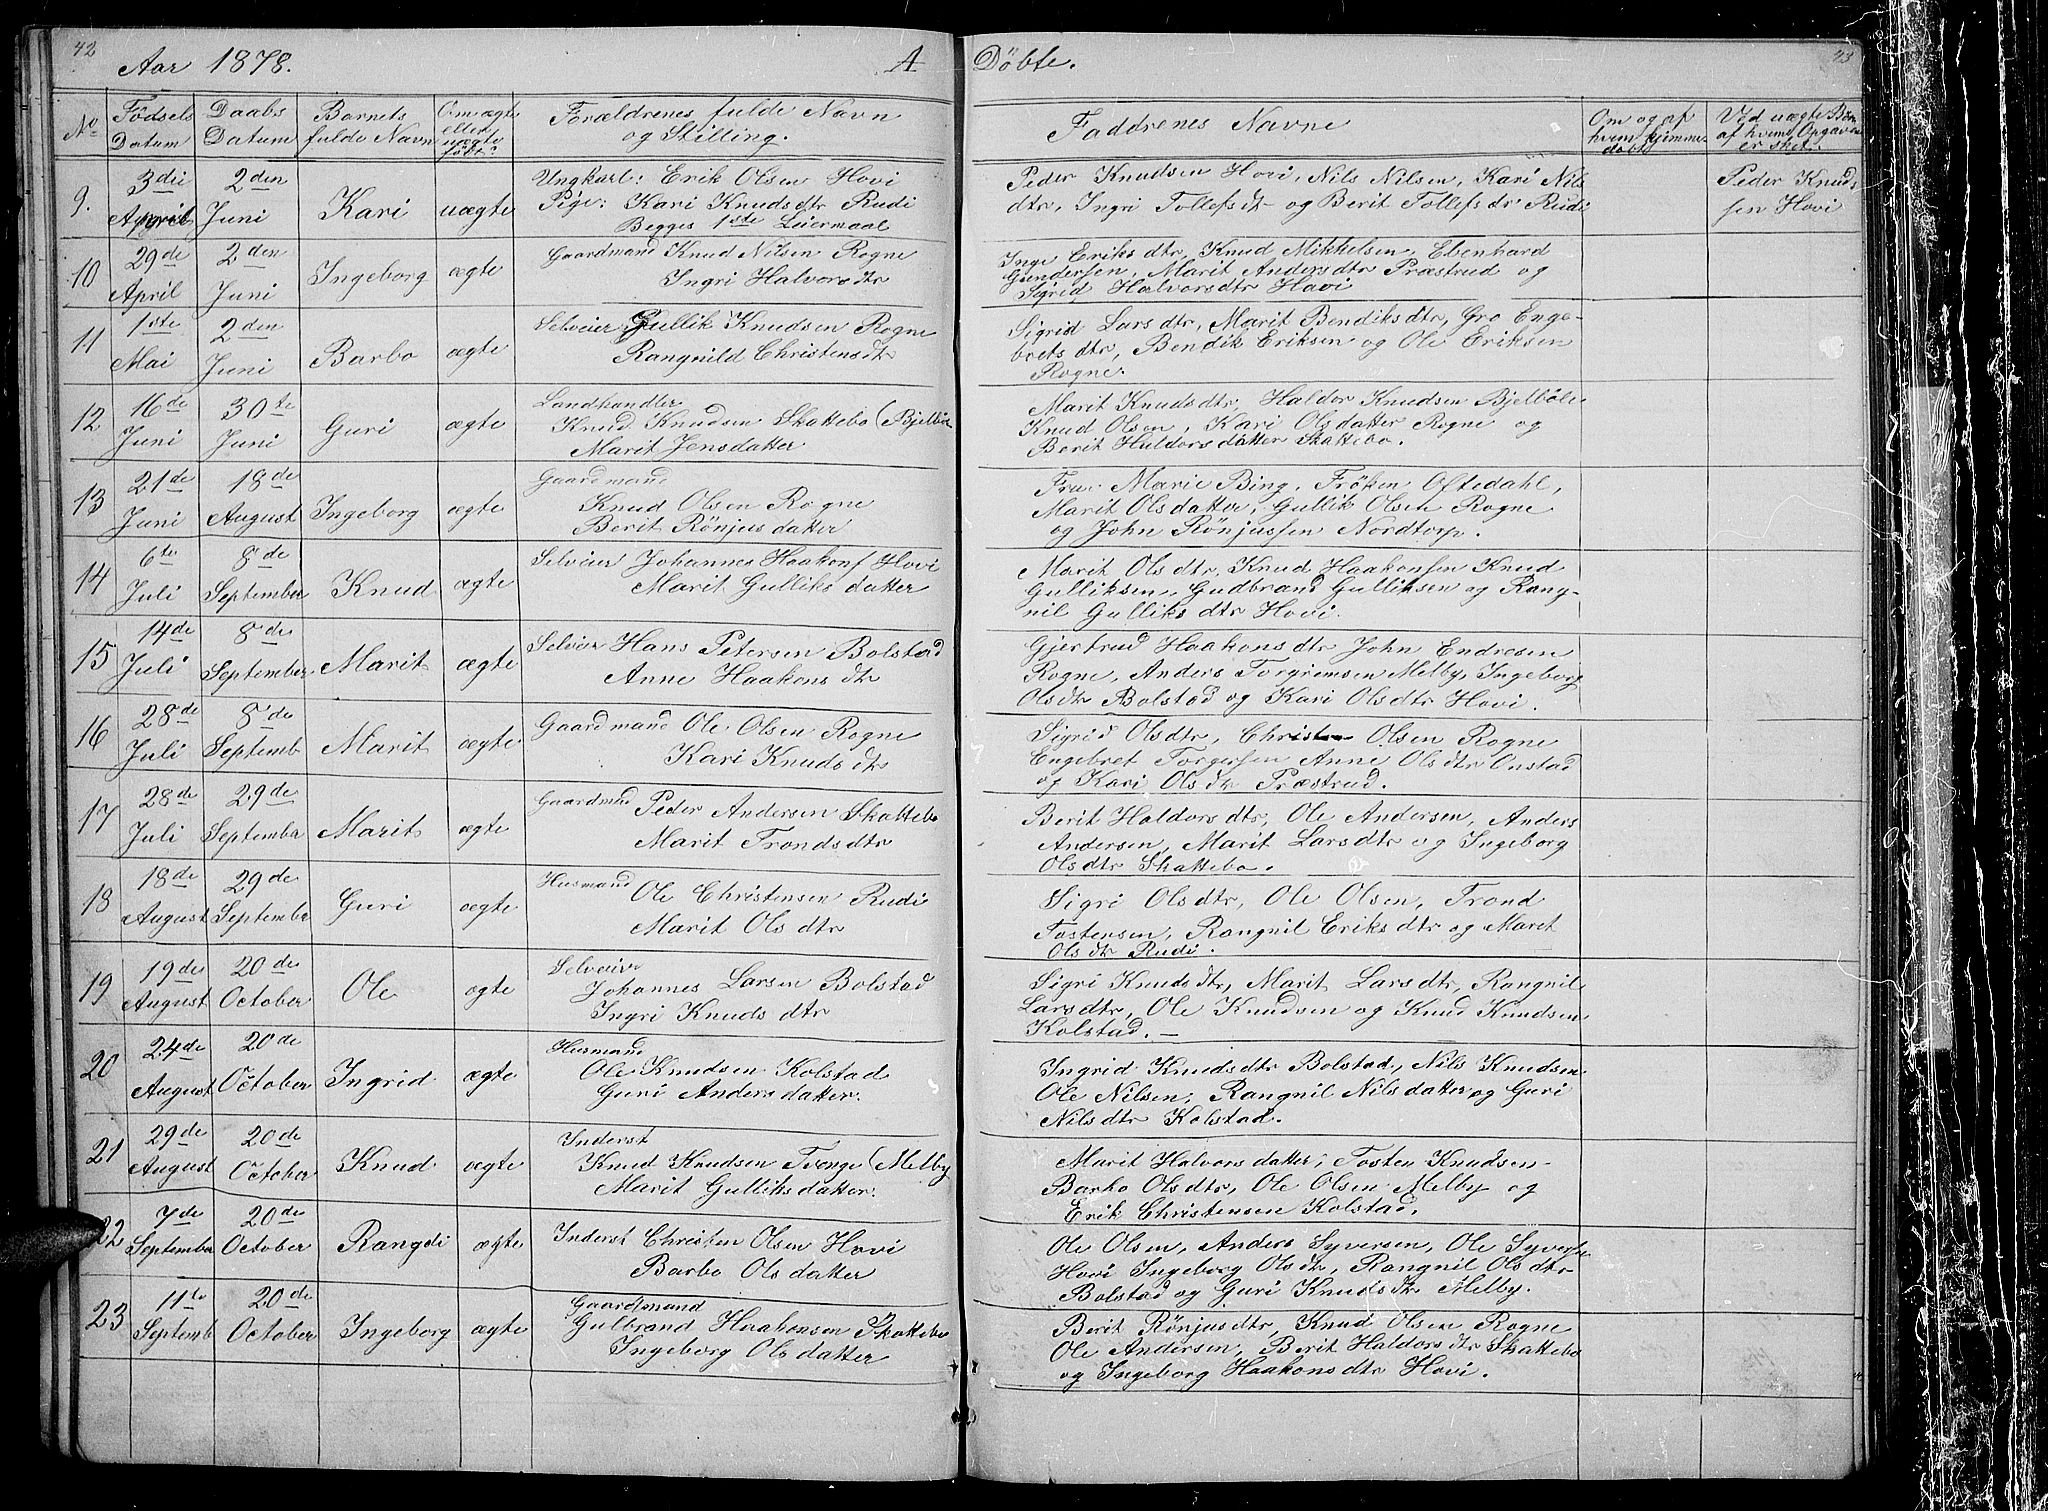 42
Aar 1878.
A
Döbte.
43
No
Fødsels Datum
Daabs Datum
Barnets fulde Navn
Om ægte eller uægte født?
Forældrenes fulde Navn og Stilling.
Faddrenes Navne
Om og af hvem hjemmedøbt
Ved uægte Børn af hvem Opgaven er sket.
9.
3die April
2den Juni
Kari
uægte
Ungkarl: Erik Olsen Hovi
Pige: Kari Knudsdtr Rudi
Begges 1ste Leiermaal
Peder Knudsen Hovi, Nils Nilsen, Kari Nils
dtr, Ingri Tollefsdtr og Berit Tollefsdr Rudi
Peder Knud
sen Hovi
10
29de April
2den Juni
Ingeborg
ægte
Gaardmand Knud Nilsen Rogne
Ingri Halvorsdtr
Inge Eriksdtr, Knud Mikkelsen, Ebenhard
Gundersen, Marit Andersdtr Præstrud og
Sigrid Halvorsdtr Hovi
11
1ste Mai
2den Juni
Barbo
ægte
Selveier Gullik Knudsen Rogne
Rangnild Christensdtr
Sigrid Larsdtr, Marit Bendiksdtr, Gro Enge-
bretsdtr, Bendik Eriksen og Ole Eriksen
Rogne.
12
16de Juni
30te Juni
Guri
ægte
Landhandler
Knud Knudsen Skattebo (Bjelbøle
Marit Jensdatter
Marit Knudsdtr, Haldor Knudsen Bjelböle
Knud Olsen, Kari Olsdatter Rogne og
Berit Haldorsdatter Skattebo.
13
21de Juni
18de August
Ingeborg
ægte
Gaardmand
Knud Olsen Rogne
Berit Rönjusdatter
Frue Marie Bing, Fröken Oftedahl,
Marit Olsdatter, Gullik Olsen Rogne
og John Rönjussen Nordtorp.
14
6te Juli
8de September
Knud
ægte
Selveier Johannes Haakons Hovi
Marit Gulliksdatter
Marit Olsdtr, Knud Haakonsen Knud
Gulliksen, Gudbrand Gulliksen og Rang-
nil Gulliksdtr Hovi.
15
14de Juli
8de September
Marit
ægte
Selveier Hans Petersen Bolstad
Anne Haakonsdtr
Gjertrud Haakonsdtr John Endresen
Rogne, Anders Torgrimsen Melby, Ingeborg
Olsdtr Bolstad og Kari Olsdtr Hovi.
16
28de Juli
8de Septemb
Marit
ægte
Gaardmand Ole Olsen Rogne
Kari Knudsdtr
Sigrid Olsdtr, Christen Olsen Rogne
Engebret Torgersen Anne Olsdtr Onstad
og Kari Olsdtr Præstrud.
17
28de Juli
29de September
Marit
ægte
Gaardmand Peder Andersen Skattebo
Marit Trondsdtr
Berit Haldorsdtr, Ole Andersen, Anders
Andersen, Marit Larsdtr og Ingeborg
Olsdtr Skattebo.
18
18de August
29de September
Guri
ægte
Husmand
Ole Christensen Rudi
Marit Olsdtr
Sigri Olsdtr, Ole Olsen, Trond
Tostensen, Rangnil Eriksdtr og Maret
Olsdtr Rudi.
19
19de August
20de October
Ole
ægte
Selveier
Johannes Larsen Bolstad
Ingri Knudsdtr
Sigri Knudsdtr, Marit Larsdtr, Rangnil
Larsdtr, Ole Knudsen og Knud Knudsen
Kolstad. —
20
24de August
20de October
Ingrid
ægte
Husmand
Ole Knudsen Kolstad
Guri Andersdatter.
Ingrid Knudsdtr Bolstad, Nils Knudsen
Ole Nilsen, Rangnil Nilsdatter og Guri
Nilsdtr Kolstad.
21
29de August
20de October
Knud
ægte
Inderst
Knud Knudsen Tvenge (Melby
Marit Gulliksdatter.
Marit Halvorsdatter, Tosten Knudsen
Barbo Olsdtr, Ole Olsen Melby og
Erik Christensen Kolstad.
22
7de September
20de October
Rangdi
ægte
Inderst Christen Olsen Hovi
Barbo Olsdatter
Ole Olsen, Anders Syversen, Ole Syversen
Hovi Ingeborg Olsdtr, Rangnil Olsdtr
Bolstad og Guri Knudsdtr Melby.
23
11te Septemb
20de October
Ingeborg
ægte
Gaardmand
Gulbrand Haakonsen Skattebo
Ingeborg Olsdatter
Berit Rönjusdtr, Knud Olsen Rogne
Ole Andersen, Berit Haldorsdtr Skattebo
og Ingeborg Haakonsdtr Hovi.